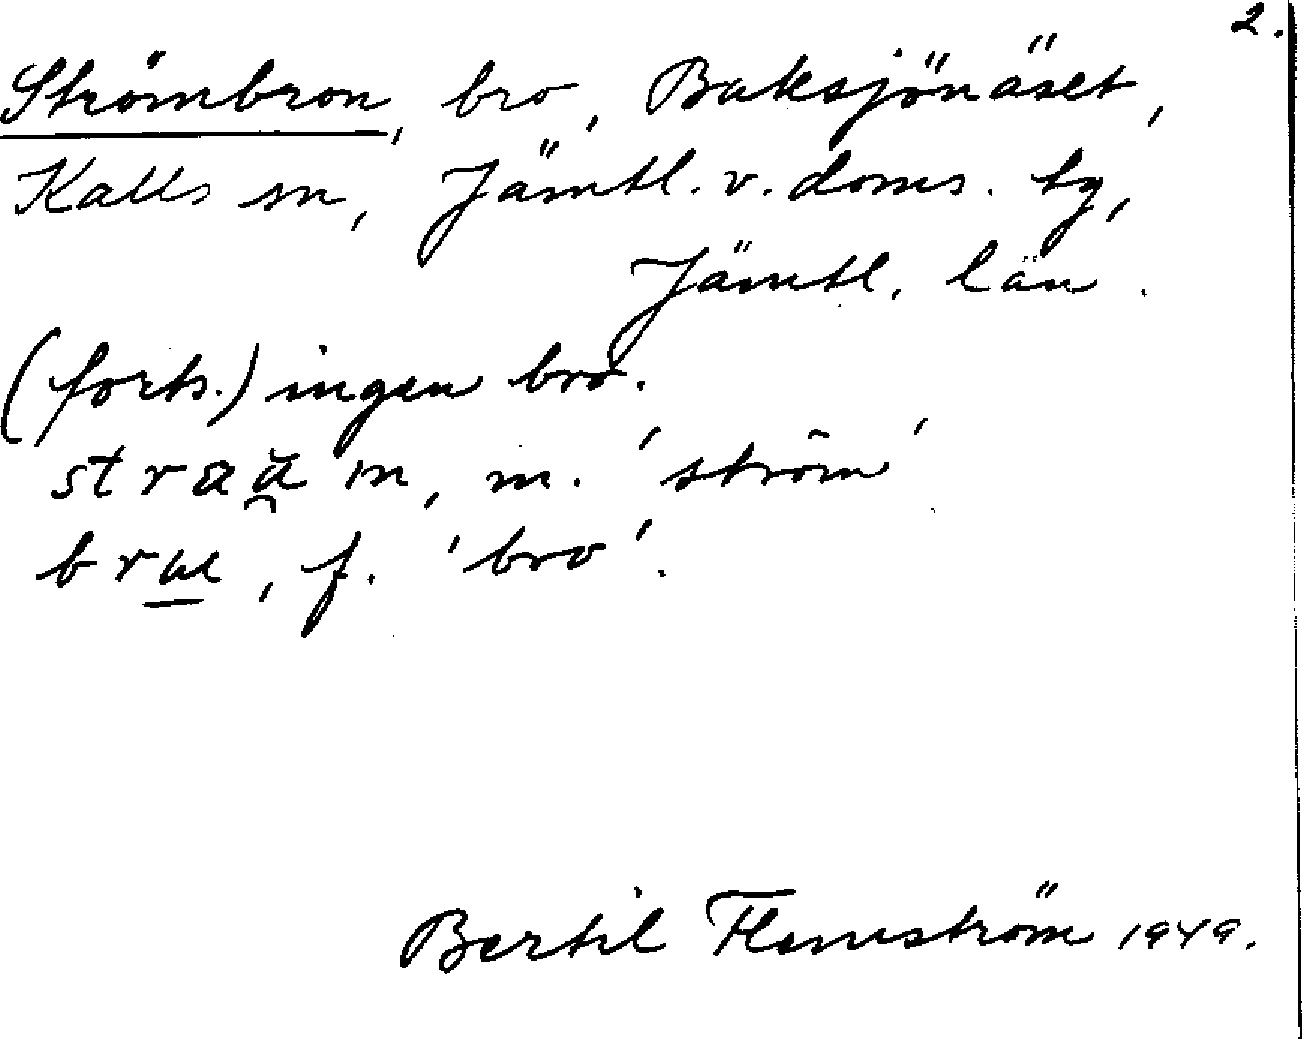 2.
Strömbron, bro, Baksjönäset,
Kalls sn, Jämtl. v. doms. tg,
Jämtl. län.
(forts.) ingen bro.
straă̯m, m. 'ström'
bru̲, f. 'bro'.
Bertil Flemström 1949.